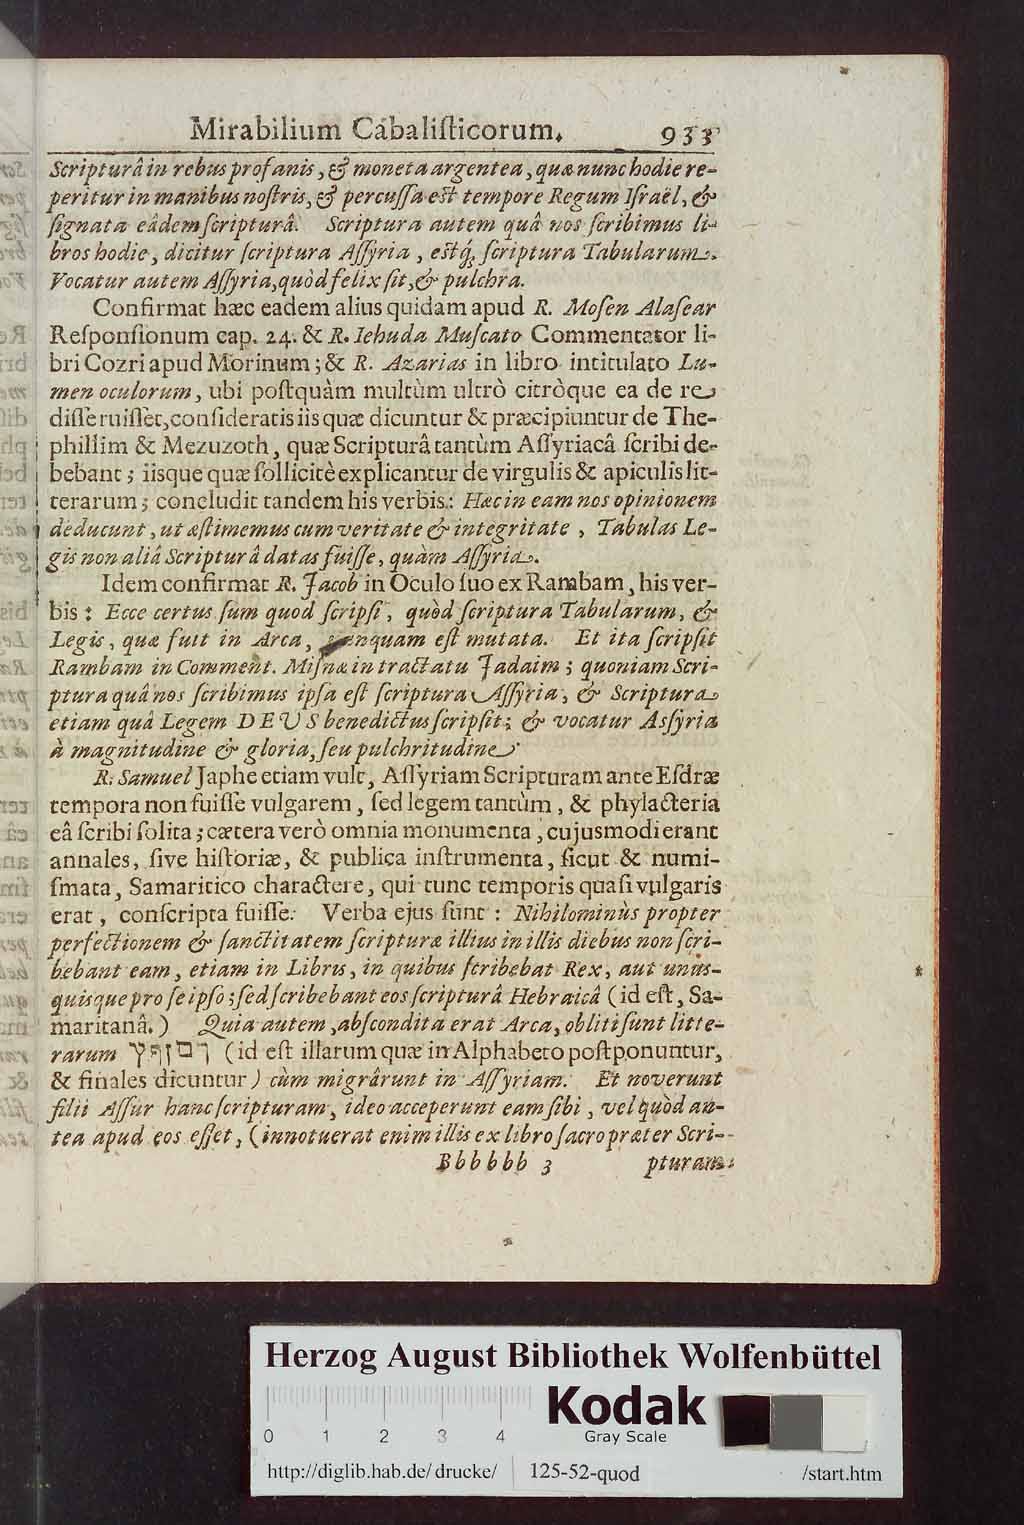 Mirabilium Cabaliſticorum. 933
Scripturâ in rebus profanis, & moneta argentea, quæ nunc hodie re-
peritur in manibus noſtris, & percuſſa eſt tempore Regum Iſraël, &
ſignata eâdem ſcripturâ. Scriptura autem quâ nos ſcribimus li-
bros hodie, dicitur ſcriptura Aſſyria, eſtq́, ſcriptura Tabularum.
Vocatur autem Aſſyria, quòd felix ſit, & pulchra.
Confirmat hæc eadem alius quidam apud R. Moſen Alaſear
Reſponſionum cap. 24. & R. Iehuda Muſcato Commentator li-
bri Cozri apud Morinum; & R. Azarias in libro intitulato Lu-
men oculorum, ubi poſtquàm multùm ultrò citròque ea de re
diſſeruiſſet, conſideratis iis quæ dicuntur & præcipiuntur de The-
phillim & Mezuzoth, quæ Scripturâ tantùm Aſſyriacâ ſcribi de-
bebant; iisque quæ ſollicitè explicantur de virgulis & apiculis lit-
terarum; concludit tandem his verbis: Hæc in eam nos opinionem
deducunt, ut æſtimemus cum veritate & integritate, Tabulas Le-
gis non aliâ Scripturâ datas fuiſſe, quàm Aſſyria.
Idem confirmat R. Jacob in Oculo ſuo ex Rambam, his ver-
bis: Ecce certus ſum quod ſcripſi, quòd ſcriptura Tabularum, &
Legis, quæ fuit in Arca, nunquam eſt mutata. Et ita ſcripſit
Rambam in Comment. Miſnæ in tractatu Jadaim; quoniam Scri-
ptura quâ nos ſcribimus ipſa eſt ſcriptura Aſſyria, & Scriptura
etiam quâ Legem DEUS benedictus ſcripſit; & vocatur Asſyria
à magnitudine & gloria, ſeu pulchritudine.
R. Samuel Japhe etiam vult, Aſſyriam Scripturam ante Eſdræ
tempora non fuiſſe vulgarem, ſed legem tantùm, & phylacteria
eâ ſcribi ſolita; cætera verò omnia monumenta, cujusmodi erant
annales, ſive hiſtoriæ, & publica inſtrumenta, ſicut & numi-
ſmata, Samaritico charactere, qui tunc temporis quaſi vulgaris
erat, conſcripta fuiſſe. Verba ejus ſunt: Nihilominùs propter
perfectionem & ſanctitatem ſcripturæ illius in illis diebus non ſcri-
bebant eam, etiam in Libris, in quibus ſcribebat Rex, aut unus-
quisque pro ſe ipſo; ſed ſcribebant eos ſcripturâ Hebraicâ (id eſt, Sa-
maritanâ.) Quia autem, abſcondita erat Arca, obliti ſunt litte-
rarum ךםןףץ (id eſt illarum quæ in Alphabeto poſtponuntur,
& finales dicuntur) cùm migrârunt in Aſſyriam. Et noverunt
filii Aſſur hanc ſcripturam, ideo acceperunt eam ſibi, vel quòd an-
tea apud eos eſſet, (innotuerat enim illis ex libro ſacro præter Scri-
Bbbbbb 3 pturam
Herzog August Bibliothek Wolfenbüttel
Kodak
Gray Scale
0 1 2 3 4
http://diglib.hab.de/drucke/ 125-52-quod /start.htm